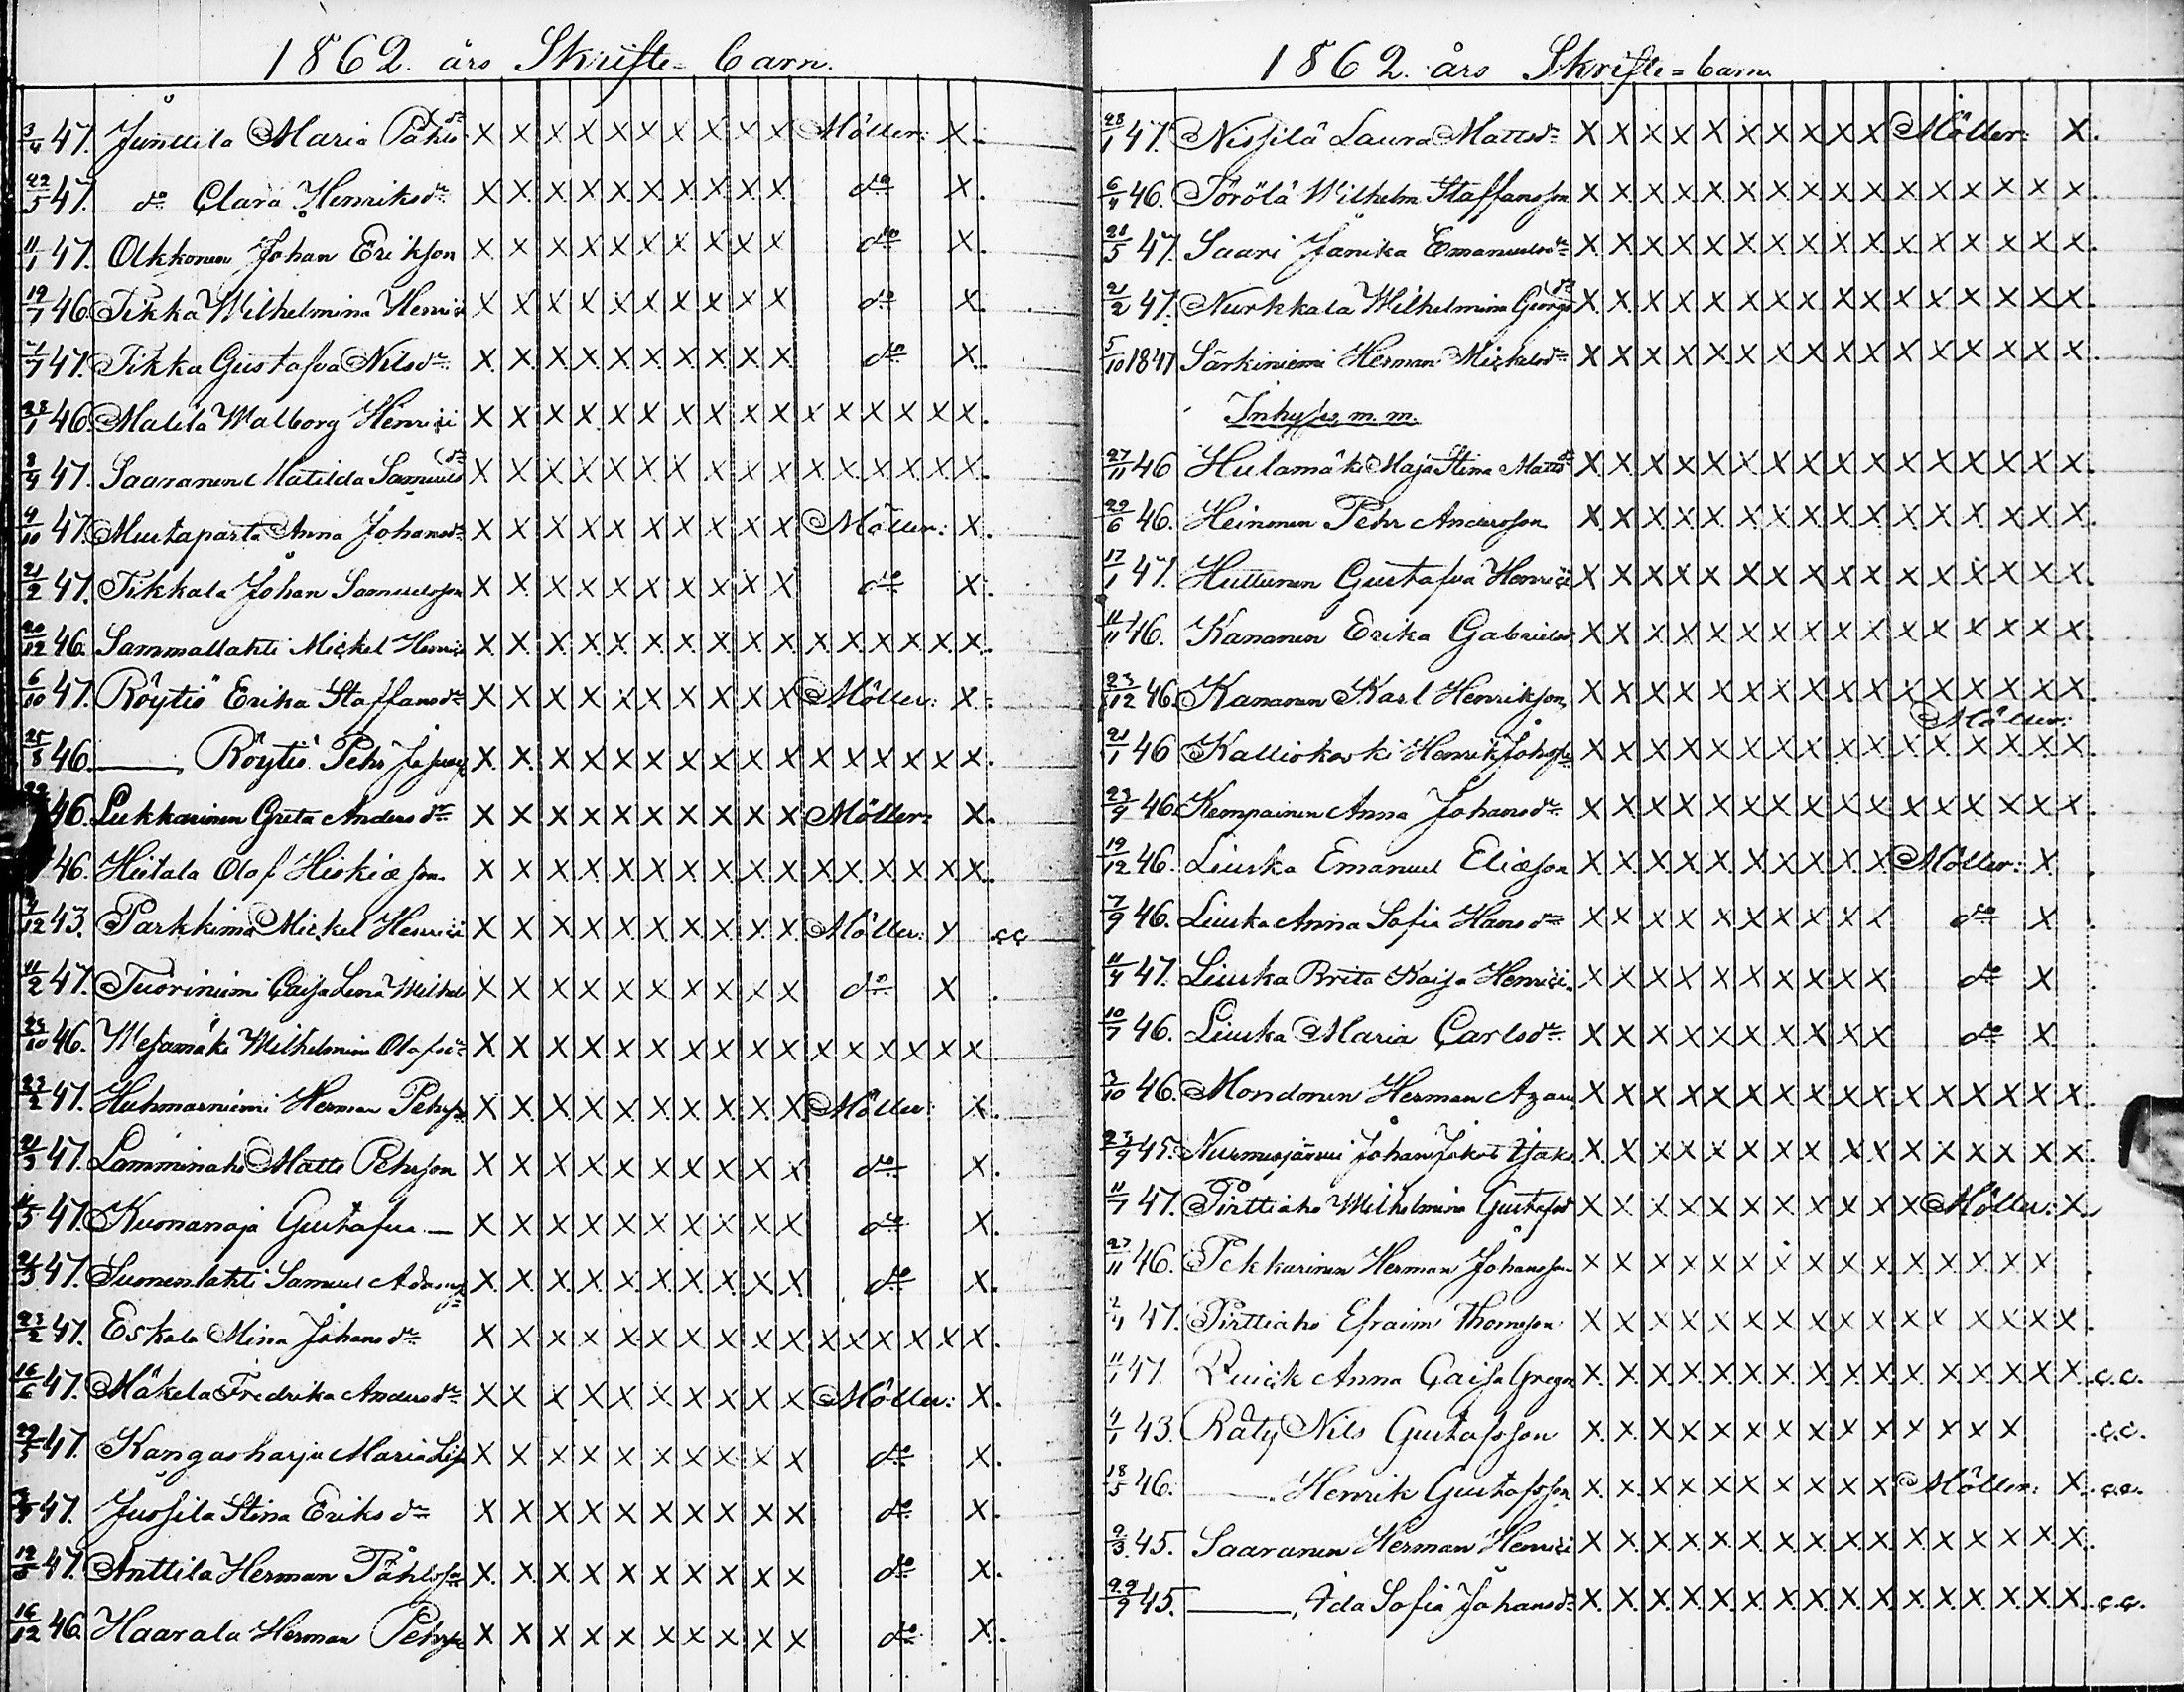 1862. års Skrifte-barn.
3/4 47. Junttila Maria Påhlsdr X X X X X X X X X X Möller: X.
22/5 47. do Clara Henriksdr X X X X X X X X X X do X.
11/1 47. Olkkonen Johan Erikson X X X X X X X X X X do X.
19/7 46. Tikka Wilhelmina Henrici X X X X X X X X X X do X.
7/7 47. Tikka Gustafva Nilsdr X X X X X X X X X X do X.
28/1 46. Malila Walborg Henrici X X X X X X X X X X X X X X X X.
8/4 47. Saaranen Matilda Samuelsdr X X X X X X X X X X X X X X X X.
4/10 47. Mustaparta Anna Johansdr X X X X X X X X X X Möller: X.
21/2 47. Tikkala Johan Samuelsson X X X X X X X X X X do X.
20/12 46. Sammallahti Mickel Henrici X X X X X X X X X X X X X X X X.
6/10 47. Röytiö Erika Staffansdr X X X X X X X X X X Möller: X.
25/8 46. —— Röytiö Pehr X X X X X X X X X X X X X X X X.
46. Lukkarinen Greta Andersdr X X X X X X X X X X Möller: X.
46. Hietala Olof Hiskiæson X X X X X X X X X X X X X X X X.
4/12 43. Parkkima Mickel Henrici X X X X X X X X X X Möller: X c.c.
11/2 47. Tuoriniemi Caisa Lena Wilhels X X X X X X X X X X do X.
25/10 46. Wesamäki Wilhelmina Olofsdr X X X X X X X X X X X X X X X X
23/2 47. Huhmarniemi Herman Pehrss X X X X X X X X X X Möller: X.
21/3 47. Lamminaho Matts Pehrsson X X X X X X X X X X do X.
11/5 47. Kuonanoja Gustafva — X X X X X X X X X X do X.
21/3 47. Suonenlahti Samuel Adamss X X X X X X X X X X do X.
23/2 47. Eskola Mina Johansdr X X X X X X X X X X X X X X X X.
16/6 47. Mäkelä Fredrika Andersdr X X X X X X X X X X Möller: X.
22/5 47. Kangasharju Maria Lisa X X X X X X X X X X do X.
47. Jussila Stina Eriksdr X X X X X X X X X X do X.
19/5 47. Anttila Herman Påhlsson X X X X X X X X X X do X.
16/12 46. Haarala Herman Pehrss X X X X X X X X X X do X.
1862. års Skrifte=barn.
28/1 47. Nissilä Laura Mattsdr X X X X X X X X X X Möller: X.
6/4 46. Törölä Wilhelm Staffansson X X X X X X X X X X X X X X X X.
28/5 47. Saari Janika Emanuelsdr X X X X X X X X X X X X X X X X.
21/2 47. Nurkkala Wilhelmina Georgsdr X X X X X X X X X X X X X X X X.
5/10 1847 Särkiniemi Herman Mickelsdr X X X X X X X X X X X X X X X X.
Inhyses m. m.
27/11 46 Hulamäki Maja Stina Mattsdr X X X X X X X X X X X X X X X X.
29/6 46. Heinonen Pehr Andersson X X X X X X X X X X X X X X X X.
17/1 47. Huttunen Gustafva Henrici X X X X X X X X X X X X X X X X.
11/11 46. Kananen Erika Gabrielsd X X X X X X X X X X X X X X X X.
23/12 46. Kananen Karl Henrikson X X X X X X X X X X X X X X X X.
Möller:
21/1 46 Kalliokoski Henrik Johsson X X X X X X X X X X X X X X X X.
23/9 46 Kempainen Anna Johansdr X X X X X X X X X X X X X X X X.
19/12 46. Liuska Emanuel Eliæson X X X X X X X X X X Möller: X .
7/9 46. Liuska Anna Sofia Hansdr X X X X X X X X X X do X .
11/4 47. Liuska Brita Kaisa Henrici X X X X X X X X X X do X .
10/7 46. Liuska Maria Carlsdr X X X X X X X X X X do X .
3/10 46. Mondonen Herman X X X X X X X X X X X X X X X X.
23/9 45. Nurmesjärvi Johan Jakob X X X X X X X X X X X X X X X X.
11/7 47. Pirttiaho Wilhelmina Gustafsd X X X X X X X X X X X Möller: X.
27/11 46. Pekkarinen Herman Johansson X X X X X X X X X X X X X X X .
2/4 47. Pirttiaho Efraim Thomson X X X X X X X X X X X X X X X X.
11/1 47. Quick Anna Caisa Gregor X X X X X X X X X X X X X X X X. c.c.
4/1 43. Räty Nils Gustafsson X X X X X X X X X X X X X X . c.c.
18/5 46. —— Henrik Gustafsson X X X X X X X X X X Möller: X. c.c.
9/3 45. Saaranen Herman Henrici X X X X X X X X X X X X X X X X.
29/9 45. ——, Ida Sofia Johansdr X X X X X X X X X X X X X X X X. c.c.